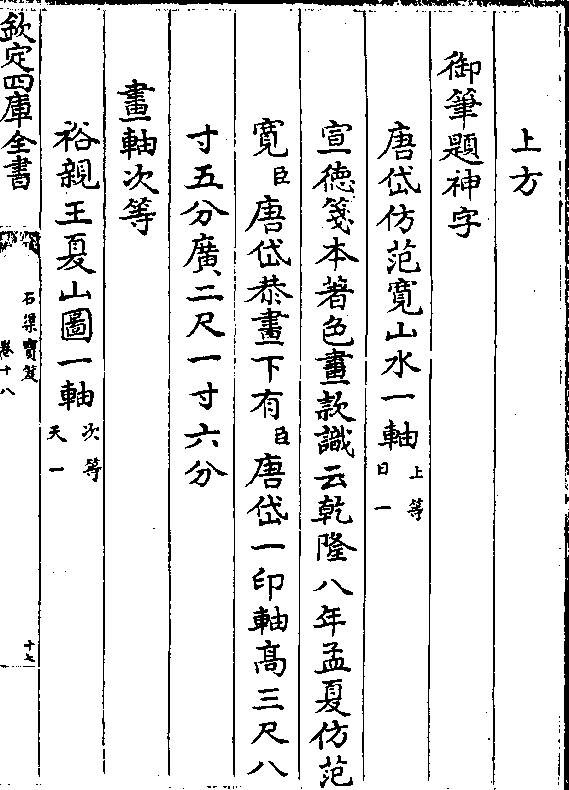 上方
御筆題神字
唐岱仿范寛山水一軸 上等
日一
宣德箋本著色畫款識云乾隆八年孟夏仿范
寛臣唐岱恭畫下有臣唐岱一印軸髙三尺八
寸五分廣二尺一寸六分
畫軸次等
裕親王夏山圖一軸 次等
天一
欽定四庫全書
石渠寶笈
卷十八
十七